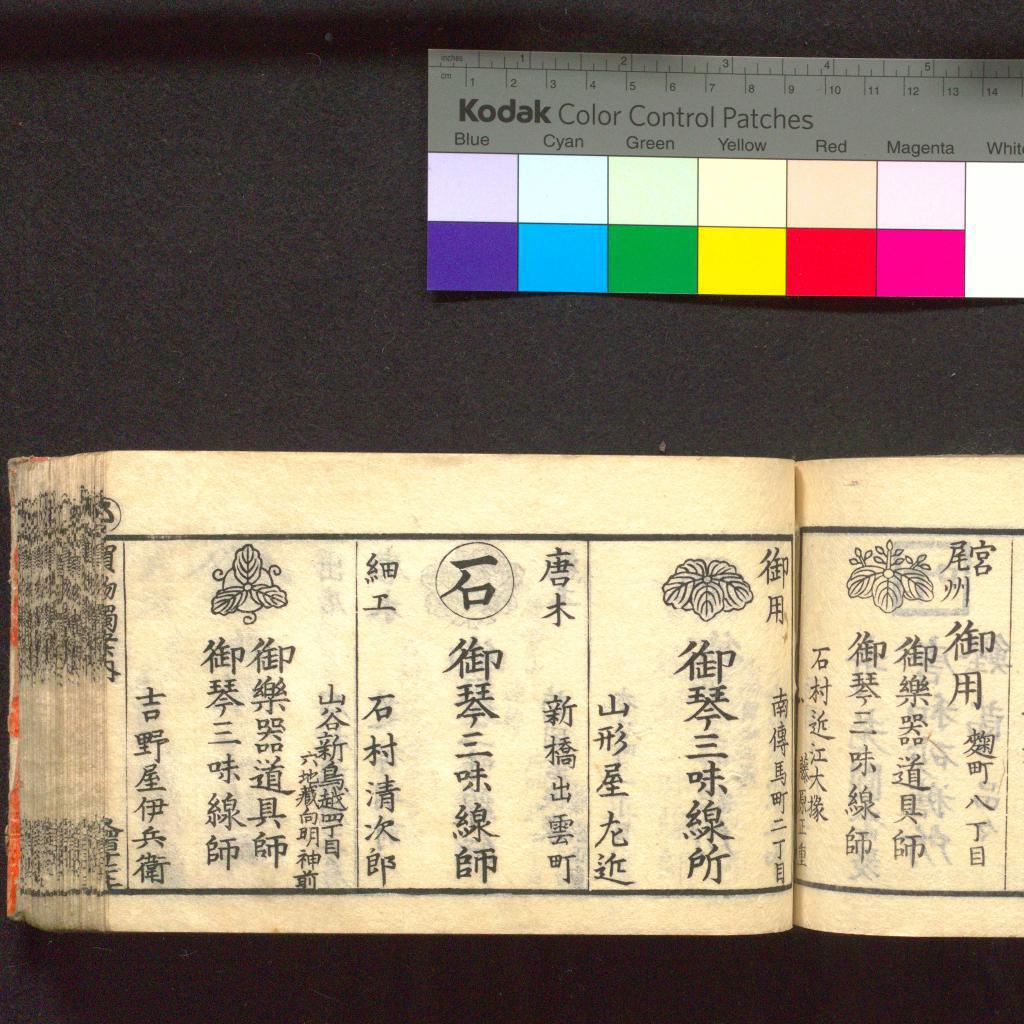 inches 1 2 3 4 5
cm 1 2 3 4 5 6 7 8 9 10 11 12 13 14
Kodak Color Control Patches
Blue Cyan Green Yellow Red Magenta White
宮
尾州
御用
麹町八丁目
御樂器道具師
御琴三味線師
石村近江大掾
藤原正重
御用
南傳馬町二丁目
御琴三味線所
山形屋尤近
唐木
新橋出雲町
石
御琴三味線師
細工
石村清次郎
山谷新鳥越四丁目
六地藏向明神前
御樂器道具師
御琴三味線師
吉野屋伊兵衛